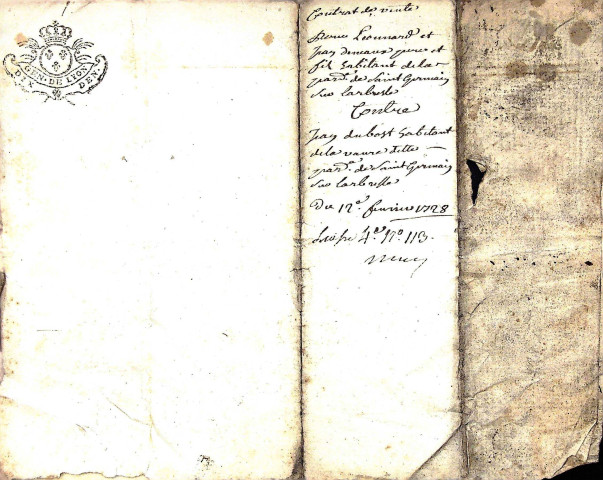 GEN. DE LYON
DIX DEN.
Contrat de vente
Leonnard et
Jean demaux pere et
fils habitant de la
parr.e de Saint Germain
Sur larbresle
Contre
Jean dubost habitant
de la vaure ditte
parr.e de Saint Germain
Sur larbresle
Du 12.e fevrier 1728
4.e No. 113.